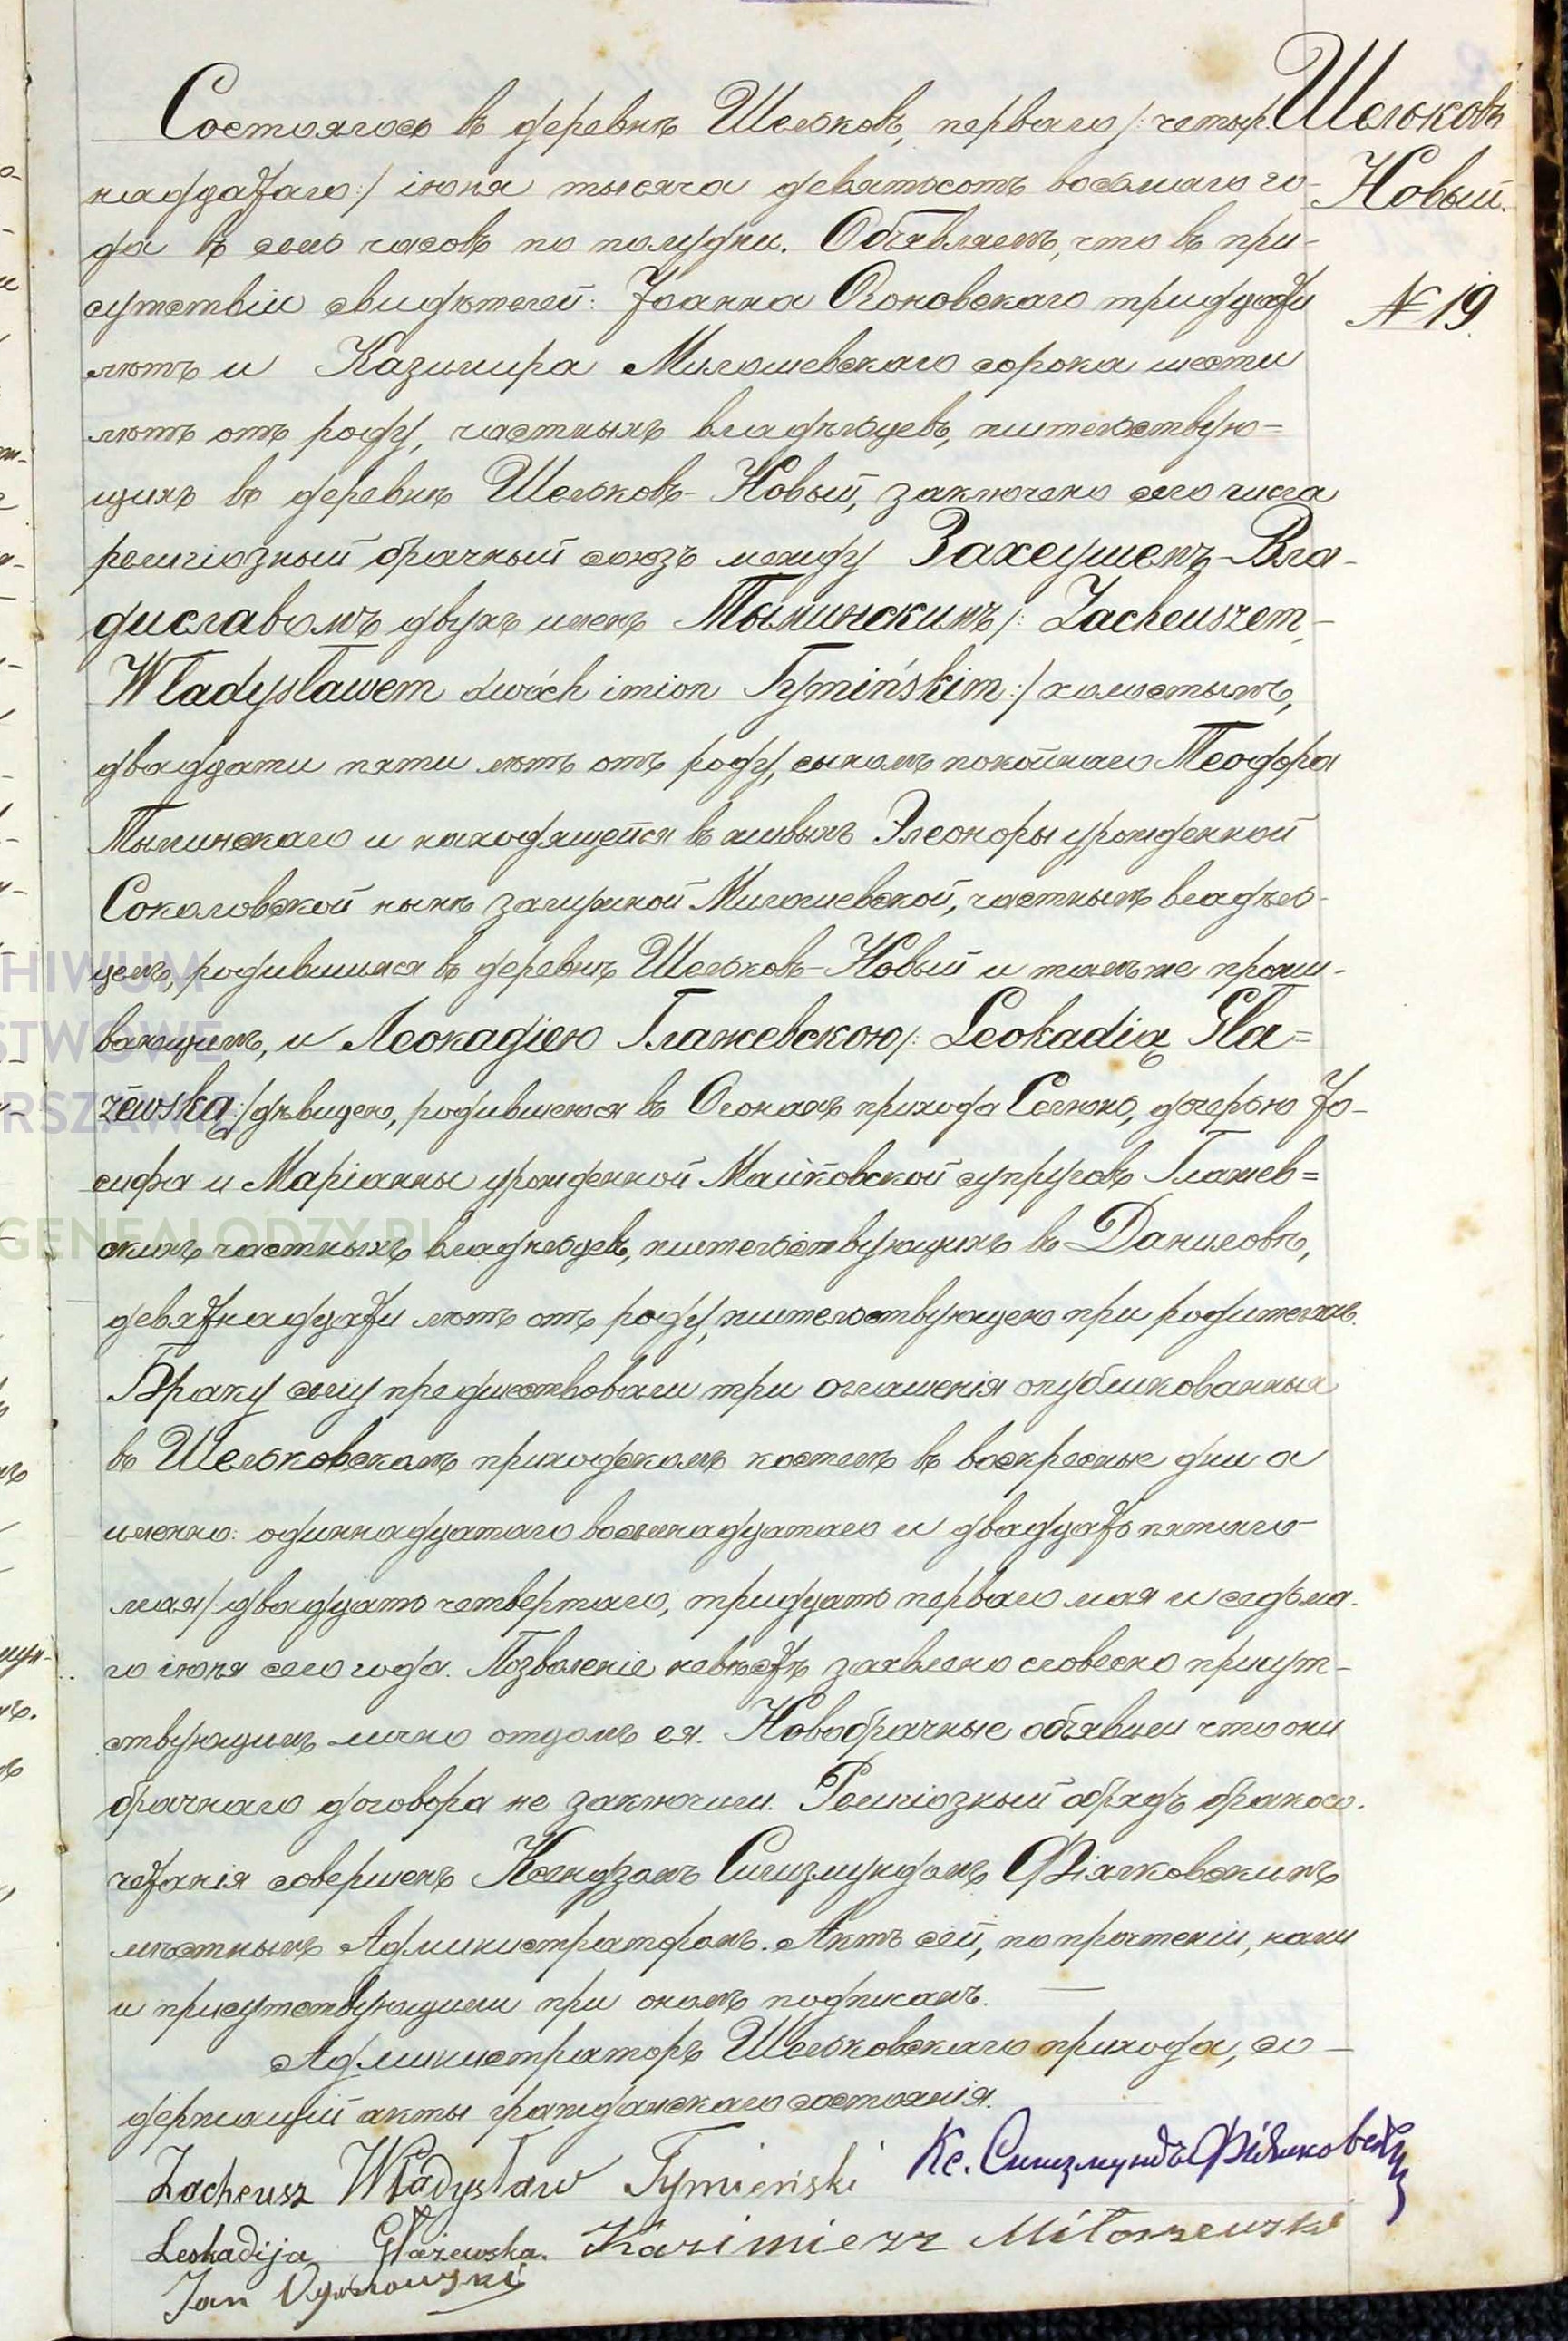 Состоялось въ деревнѣ Шельковъ, перваго /:четыр-
Шельковъ
Новый.
№ 19.
надцатаго:/ іюня тысяча девятьсотъ восьмаго го-
да въ семь часовъ по полудни. Объявляемъ, что въ при-
сутствіи свидѣтелей: Іоанна Огоновскаго тридцати
лѣтъ и Казимира Милошевскаго сорока шести
лѣтъ отъ роду, частныхъ владѣльцевъ, жительствую=
щихъ въ деревнѣ Шельковъ-Новый, заключено сего числа
религіозный брачный союзъ между Захеушемъ-Вла-
диславомъ двухъ именъ Тыминскимъ /: Zacheuszem-
Władysławem dwóch imion Tymińskim:/ холостымъ,
двадцати пяти лѣтъ отъ роду, сыномъ покойнаго Теодора
Тыминскаго и находящейся въ живыхъ Элеоноры урожденной
Соколовской нынѣ замужной Милошевской, частнымъ владѣль-
цемъ, родившимся въ деревнѣ Шельковъ-Новый и тамъже прожи-
вающимъ, и Леокадіею Глажевскою /: Leokadią Gła=
żewską:/ дѣвицею, родившеюся въ Огонахъ прихода Сѣлюнь, дочерью Іо-
сифа и Маріанны урожденной Майковской супруговъ Глажев=
скихъ частныхъ владѣльцевъ, жительствующихъ въ Даниловѣ,
девятнадцати лѣтъ отъ роду, жительствующею при родителяхъ.
Браку сему предшествовали три оглашенія опубликованныя
въ Шельковскомъ приходскомъ костелѣ въ воскресные дни а
именно: одиннадцатаго восемнадцатаго и двадцать пятаго
мая /:двадцать четвертаго, тридцать перваго мая и седьма-
го іюня сего года. Позволеніе невѣстѣ заявлено словесно присут-
ствующимъ лично отцомъ ея. Новобрачные объявили что они
брачнаго договора не заключили. Религіозный обрядъ бракосо-
четанія совершенъ Ксендзомъ Сигизмундомъ Фіялковскимъ
мѣстнымъ Администраторомъ. Актъ сей, по прочтеніи, нами
и присутствующими при ономъ подписанъ. —
Администраторъ Шельковскаго прихода, со-
держащій акты гражданскаго состоянія.
Кс. Сигизмундъ Фіялковскій
Zacheusz Władysław Tymieński
Leokadija Głażewska. Kazimierz Miłoszewski
Jan Ogonowski